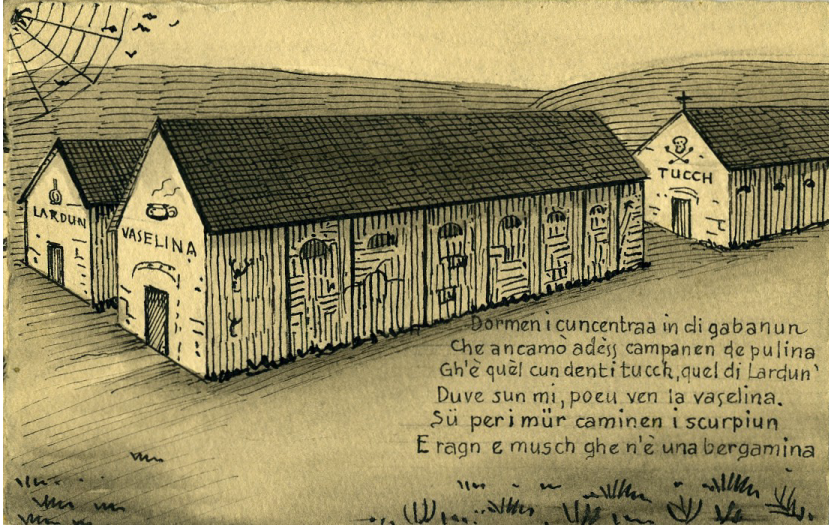 LARDUN
VASELINA
TUCCH
Dormen i cuncentraa in di gabanun
Che ancamò adèss campanen de pulina
Gh'è quèl cun denti tucch, quel di Lardun'
Duve sun mi, poeu ven la vaselina.
Sü per i mür caminen i scurpiun
E ragn e musch ghe n'è una bergamina